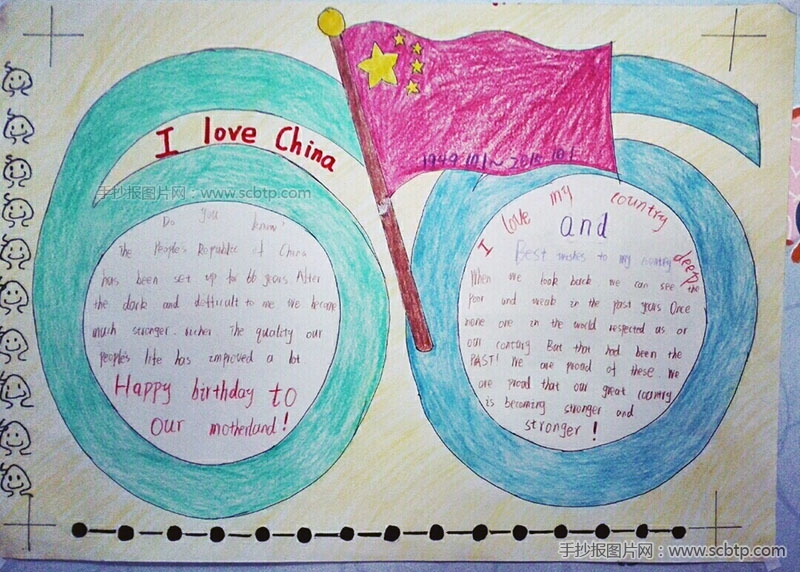 I love China
手抄报图片网:www.scbtp.com
1949.10.1~2015.10.1
Do you know?
The People's Republic of China
has been set up for 66 years. After
the dark and difficult to me we become
much stronger. richer. The quality our
people's life has improved a lot
Happy birthday to
our motherland!
I love my country deep
and
Best wishes to my country
When we look back we can see the
poor and weak in the past years Once
none one in the world respected us or
our contury But that had been the
PAST! We are proud of these We
are proud that our great country
is becoming stronger and
stronger!
手抄报图片网:www.scbtp.com